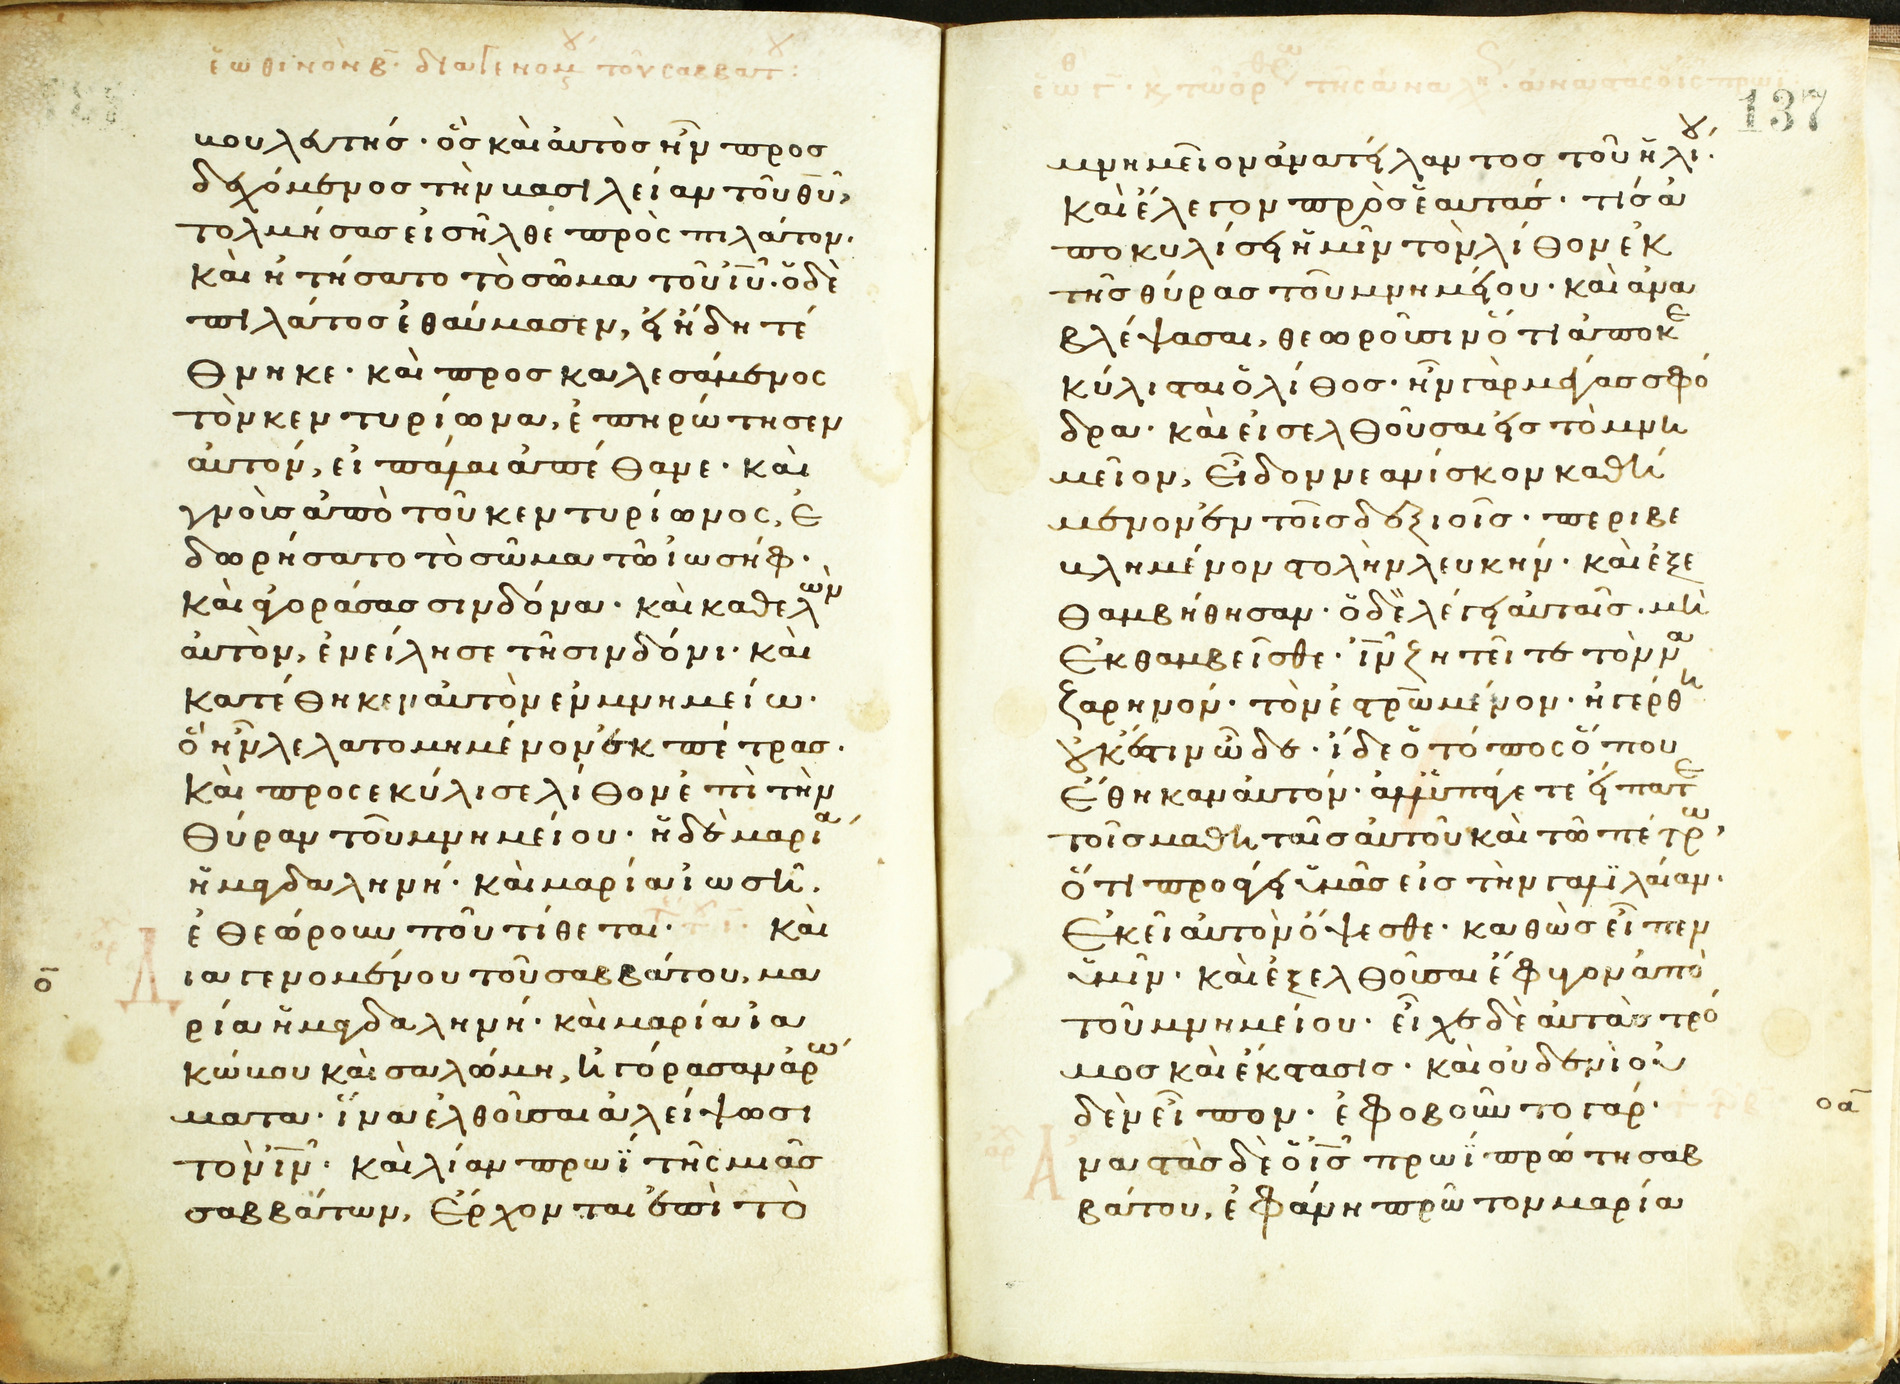 ἑωθινὸν β̄· διαγενομ τοῦ σαββατ:
βουλευτής· ὃς καὶ αὐτὸς ἦν προσ
δεχόμενος τὴν βασιλείαν τοῦ θυ,
τολμήσας εἰσῆλθε πρὸς πιλάτον·
καὶ ἠτήσατο τὸ σῶμα τοῦ ιυ· ὁ δὲ
πιλάτος ἐθαύμασεν, εἰ ἤδη τέ
θνηκε· καὶ προσκαλεσάμενος
τὸν κεντυρίωνα, ἐπηρώτησεν
αὐτόν, εἰ πάλαι ἀπέθανε· καὶ
γνοὺς ἀπὸ τοῦ κεντυρίωνος, ἐ
δωρήσατο τὸ σῶμα τῶ ἰωσήφ·
καὶ ἀγοράσας σινδόνα· καὶ καθελὼν
αὐτὸν, ἐνείλησε τῆ σινδόνι· καὶ
κατέθηκεν αὐτὸν ἐν μνημείω·
ὃ ἦν λελατομημένον ἐκ πέτρας·
καὶ προσεκύλισε λίθον ἐπὶ τὴν
θύραν τοῦ μνημείου· ἡ δὲ μαρία
ἡ μαγδαληνή· καὶ μαρία ἰωσῆ·
ἐθεώρουν ποῦ τίθεται· καὶ
ο̄ Διαγενομένου τοῦ σαββάτου, μα
ρία ἡ μαγδαληνή· καὶ μαρία ἰα
κώβου καὶ σαλώμη, ἠγόρασαν ἀρώ
ματα· ἵνα ἐλθοῦσαι ἀλείψωσι
τὸν ιν· καὶ λίαν πρωῒ τῆς μιᾶς
σαββάτων, ἔρχονται ἐπὶ τὸ
137
μνημεῖον ἀνατείλαντος τοῦ ἡλίου·
καὶ ἔλεγον πρὸς ἑαυτάς· τίς ἀ
ποκυλίσει ἡμῖν τὸν λίθον ἐκ
τῆς θύρας τοῦ μνημείου· καὶ ἀνα
βλέψασαι, θεωροῦσιν ὅτι ἀποκε
κύλισται ὁ λίθος· ἦν γὰρ μέγας σφό
δρα· καὶ εἰσελθοῦσαι εἰς τὸ μνη
μεῖον, εἶδον νεανίσκον καθή
μενον ἐν τοῖς δεξιοῖς· περιβε
βλημένον στολὴν λευκήν· καὶ ἐξε
θαμβήθησαν· ὁ δὲ λέγει αὐταῖς· μὴ
ἐκθαμβεῖσθε· ιν ζητεῖτε τὸν να
ζαρηνόν· τὸν ἐστρωμένον· ἠγέρθη
οὐκ ἔστιν ὧδε· ἴδε ὁ τόπος ὅπου
ἔθηκαν αὐτόν· ἀλλ' ὑπάγετε εἴπατε
τοῖς μαθηταῖς αὐτοῦ καὶ τῶ πέτρω,
ὅτι προάγει ὑμᾶς εἰς τὴν γαλιλαίαν·
ἐκεῖ αὐτὸν ὄψεσθε· καθὼς εἶπεν
ὑμῖν· καὶ ἐξελθοῦσαι ἔφυγον ἀπὸ
τοῦ μνημείου· εἶχε δὲ αὐτὰς τρό
μος καὶ ἔκστασις· καὶ οὐδενὶ οὐ
δὲν εἶπον· ἐφοβοῦντο γάρ· οᾱ
Ἀναστὰς δὲ ὁ ις πρωῒ πρώτη σαβ
βάτου, ἐφάνη πρῶτον μαρία